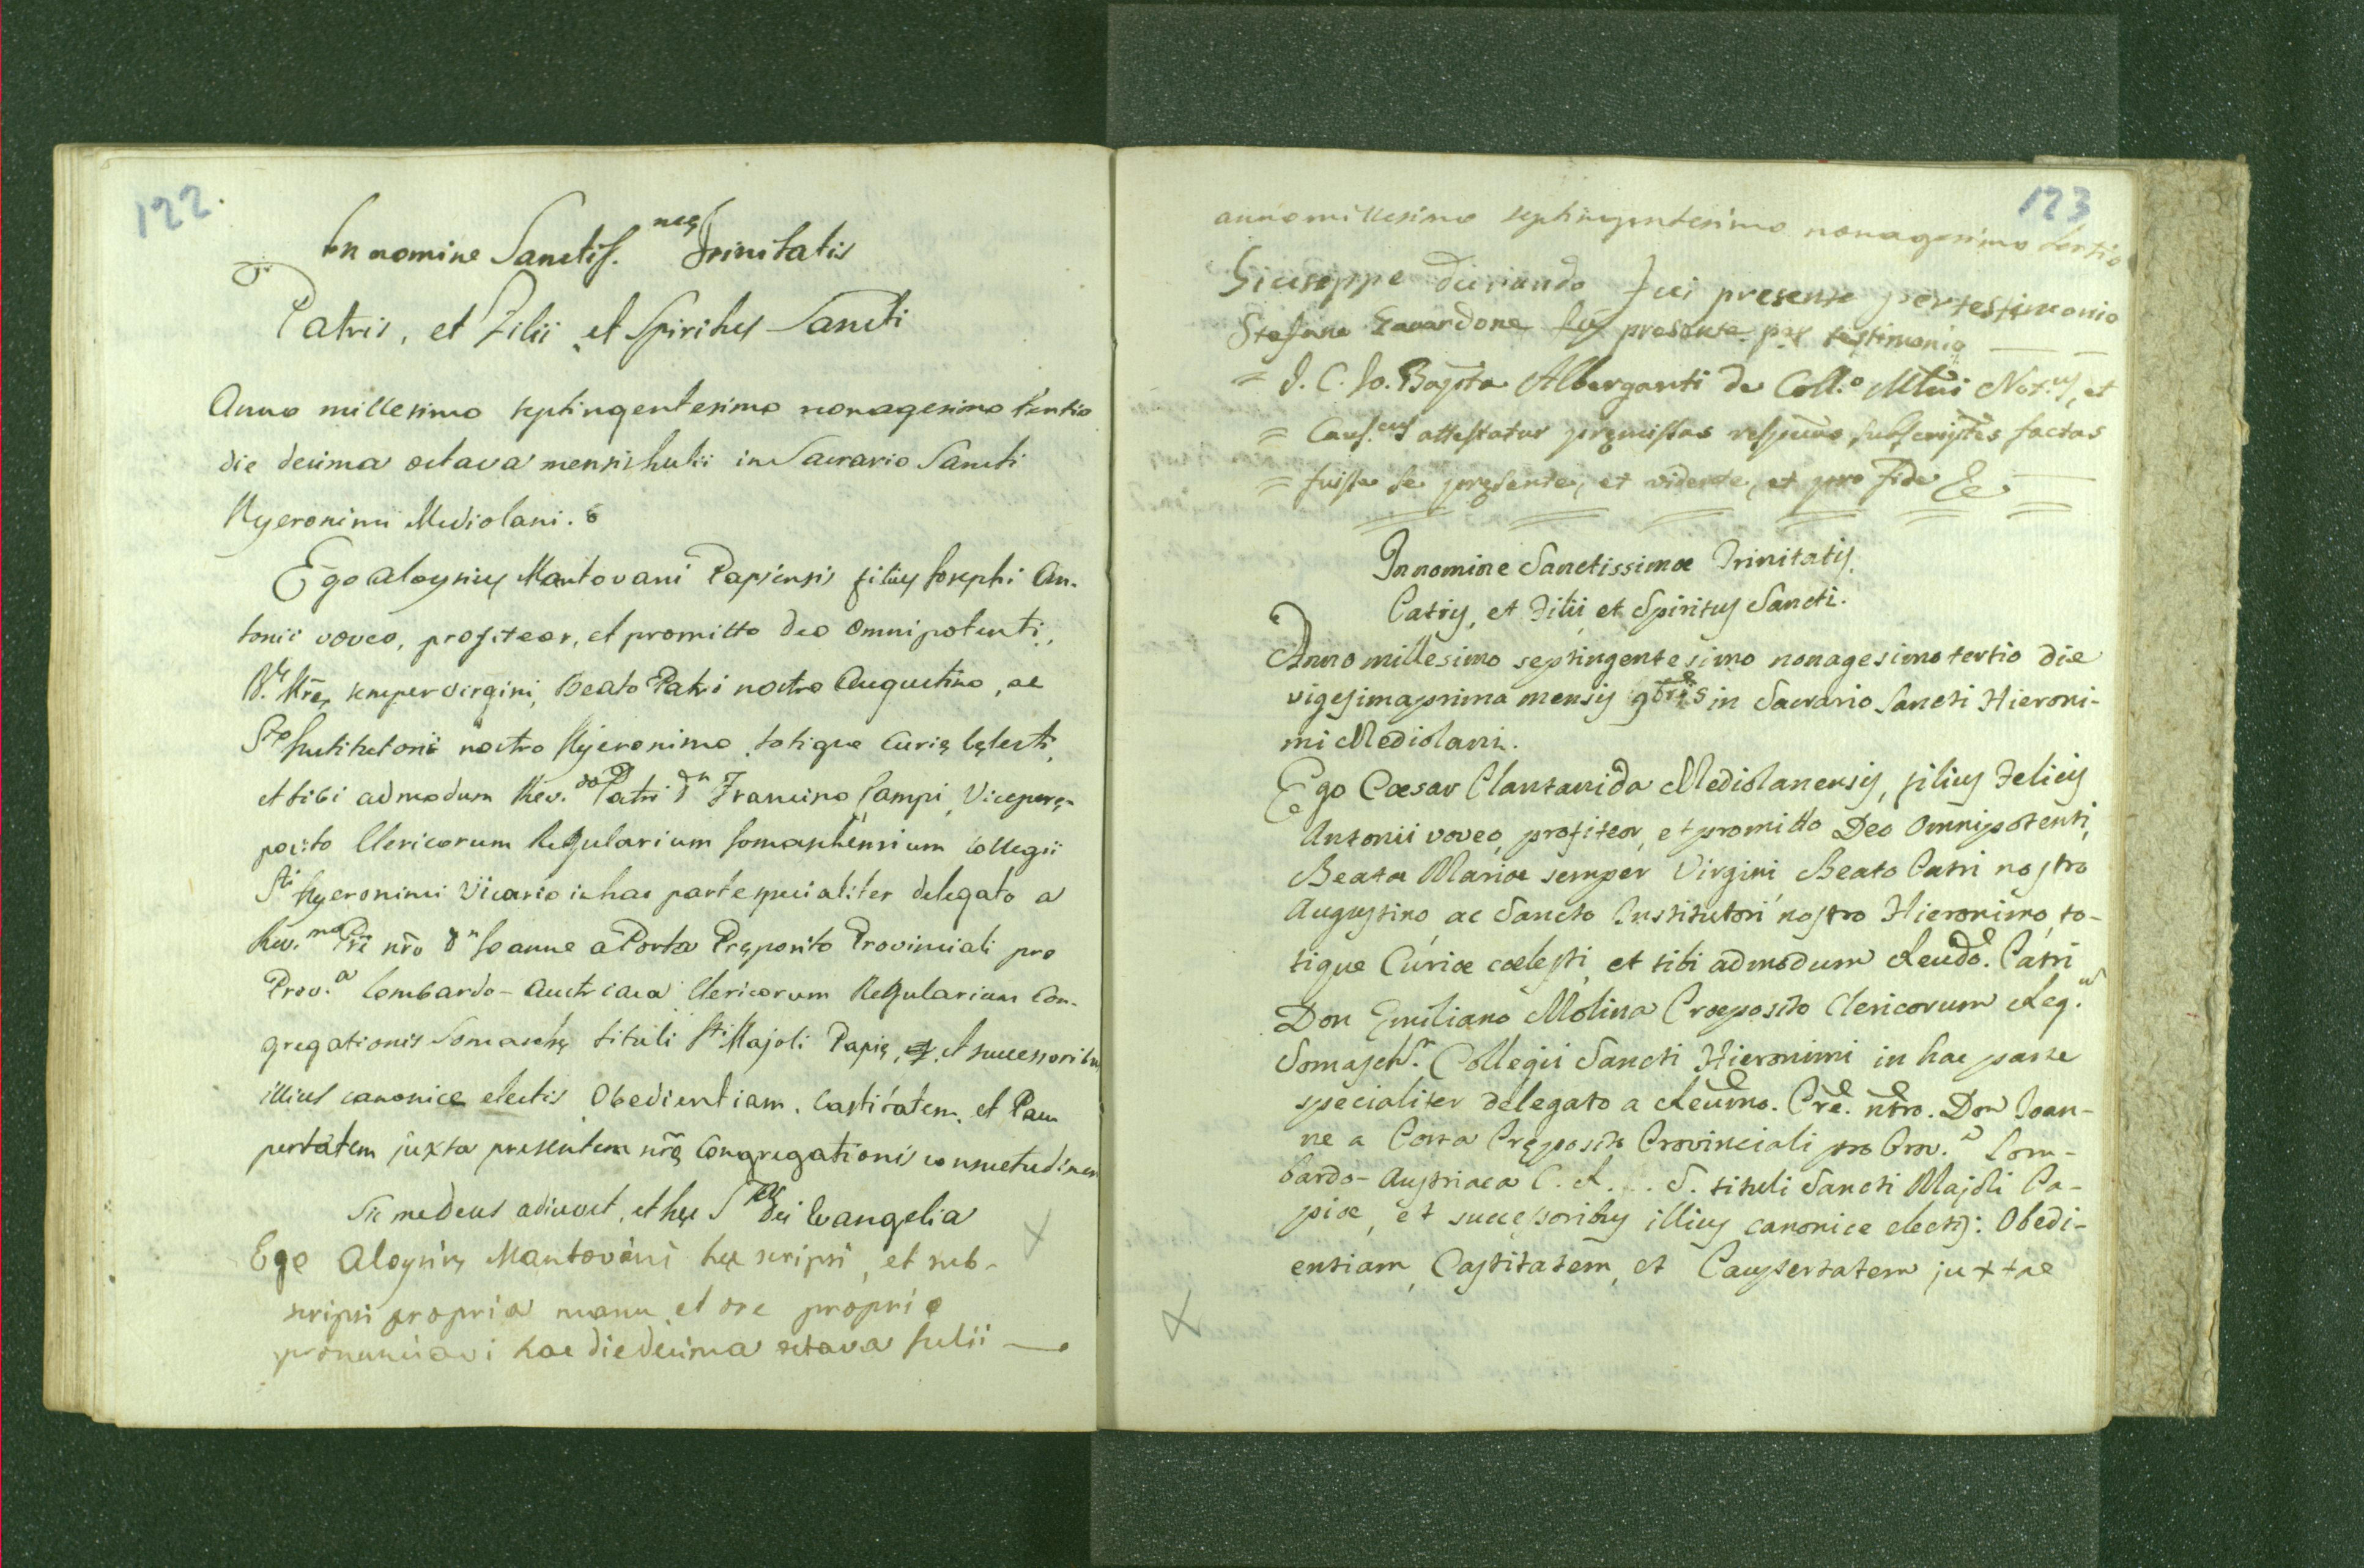 122.
In nomine Sanctiss. meę Trinitatis
Patris, et Filii et Spiritus Sancti
Anno millesimo septingentesimo nonagesimo tertio
die decima octava mensis Julii in Sacrario Sancti
Hyeronimi Mediolani.
Ego Aloysius Mantovani Papiensis filius Josephi An-
tonii voveo, profiteor, et promitto Deo Omnipotenti,
B. Mrę semper virgini, Beato Patri nostro Augustino, ac
Sto Institutori nostro Hyeronimo totique Curię cęlesti,
et tibi admodum Rev.do Patri Dn Francino Campi Viceprę-
posito Clericorum Regularium Somaschensium Collegii
Sti Hyeronimi Vicario in hac parte specialiter delegato a
Rev.mo Pre nro Dn Joanne a Porta Pręposito Provinciali pro
Prov.a Lombardo-Austriaca Clericorum Regularium Con-
gregationis Somaschę tituli Sti Majoli Papię, et successoribus
illius canonice electis Obedientiam, Castitatem, et Pau
pertatem juxta presentem nrę Congregationis consuetudinem
Sic me Deus adiuvet, et hęc S Dei Evangelia
Ego Aloysius Mantovani hęc scripsi, et sub-
scripsi propria manu et ore proprio
pronunciavi hac die decima octava Julii
123
anno millesimo septingentesimo nonagesimo tertio
Giuseppe Duriando fui presente per testimonio
Stefano Gavardone fui presente per testimonio
= J. C. Jo. Bapta Alberganti de Coll.o Mlni Not.us, et
= Caus.cus attestatur pręmissas respvas subscriptes factas
= fuisse se pręsente, et vidente, et pro fide &c
In nomine Sanctissimæ Trinitatis
Patris, et Filii et Spiritus Sancti.
Anno millesimo septingentesimo nonagesimo tertio die
vigesimaprima mensis 9bris in Sacrario Sancti Hieroni-
mi Mediolani.
Ego Cæsar Plantanida Mediolanensis, filius Felicis
Antonii voveo, profiteor, et promitto Deo Omnipotenti,
Beatæ Mariæ semper Virgini Beato Patri nostro
Augustino, ac Sancto Institutori nostro Hieronimo, to-
tique Curiæ cœlesti, et tibi admodum Reudo. Patri
Don Emiliano Molina Præposito Clericorum Reg.
Somasch. Collegii Sancti Hieronimi in hac parte
specialiter delegato a Reumo. Pre. ntro. Don Joan-
ne a Porta Pręposito Provinciali pro Prov.a Lom-
bardo-Austriaca C. R. . . S. tituli Sancti Majoli Pa-
piæ, et successoribus illius canonice electis: Obedi-
entiam, Castitatem, et Paupertatem juxtae